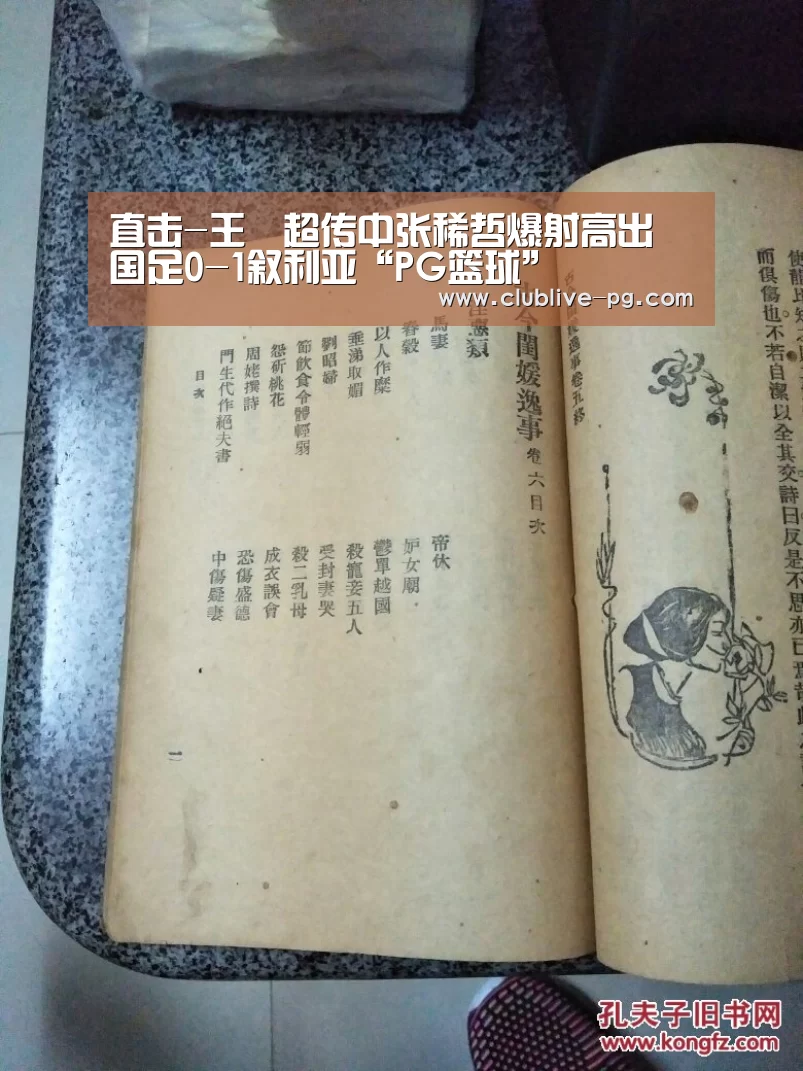 直击-王 超传中张稀哲爆射高出
国足0-1叙利亚“PG篮球”
www.clublive-pg.com
而俱傷也不若自潔以全其交詩曰反是不思亦已焉
今閨媛逸事 卷六目次
馬妻
帝休
春穀
妒女廟
以人作糜
鬱單越國
垂涕取媚
殺寵妾五人
劉昭婦
受封妻哭
節飲食令體輕弱
殺二乳母
怨斫桃花
成衣誤會
周姥撰詩
恐傷盛德
門生代作絕夫書
中傷疑妻
目次
一
孔夫子旧书网
www.kongfz.com